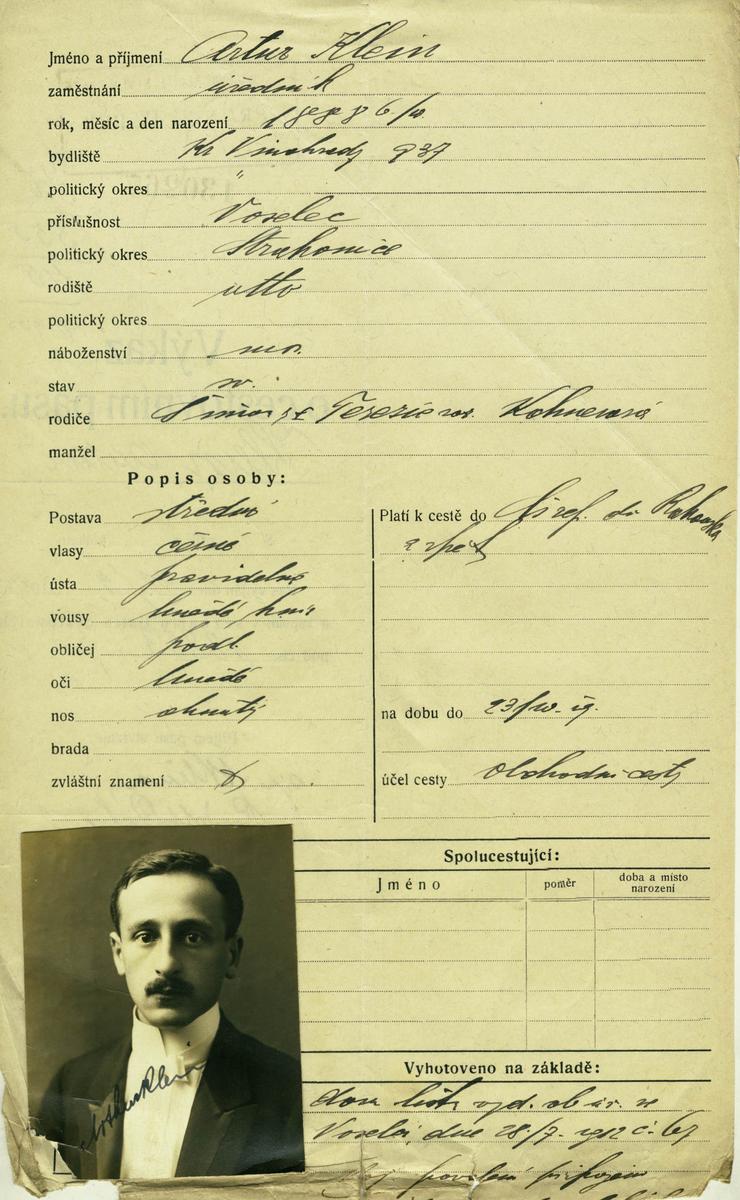 Jméno a příjmení Artur Klein
zaměstnání úředník
rok, měsíc a den narození
bydliště Kr Vinohrady 937
politický okres "
příslušnost Voselec
politický okres Strakonice
rodiště
politický okres
náboženství mos.
stav sv.
rodiče Terezie roz. Kohnerová
manžel
Popis osoby:
Postava střední
vlasy černé
ústa pravidelná
vousy hnědé
obličej podl.
oči hnědé
nos
brada
zvláštní znamení
Platí k cestě do do Rakouska
a zpět
na dobu do 23/IV.
účel cesty Obchodní cesty
Spolucestující:
Jméno
poměr
doba a místo
narození
Vyhotoveno na základě:
Dom. listu vyd. ob. úř. ve
Voselci, dne 28/7. 1912 č. 67
povolení připojeno
Artur Klein